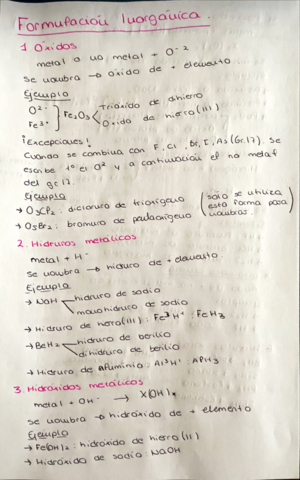 Formulación Inorgánica.
1. Óxidos
metal o no metal + O⁻²
Se nombra → Óxido de + elemento.
Ejemplo
O²⁻ } Fe₂O₃ < Trióxido de dihierro
Fe³⁺ Óxido de hierro (III)
¡Excepciones!
Cuando se combina con F, Cl, Br, I, As (Gr.17). Se
escribe 1º el O² y a continuación el no metal
del gr 17.
Ejemplo
→ O₃Cl₂: dicloruro de trioxígeno (solo se utiliza
→ O₅Br₂: bromuro de pentaoxígeno esta forma para
nombrar.)
2. Hidruros metálicos
metal + H⁻
se nombra → hidruro de + elemento.
Ejemplo
→ NaH < hidruro de sodio
monohidruro de sodio
→ Hidruro de hierro (III): Fe³H⁻: FeH₃
→ BeH₂ < hidruro de berilio
dihidruro de berilio
→ Hidruro de Aluminio: Al³H⁻: AlH₃
3. Hidróxidos metálicos
metal + OH⁻ → X(OH)ₓ
se nombra → hidróxido de + elemento
Ejemplo
→ Fe(OH)₂: hidróxido de hierro (II)
→ Hidróxido de sodio: NaOH